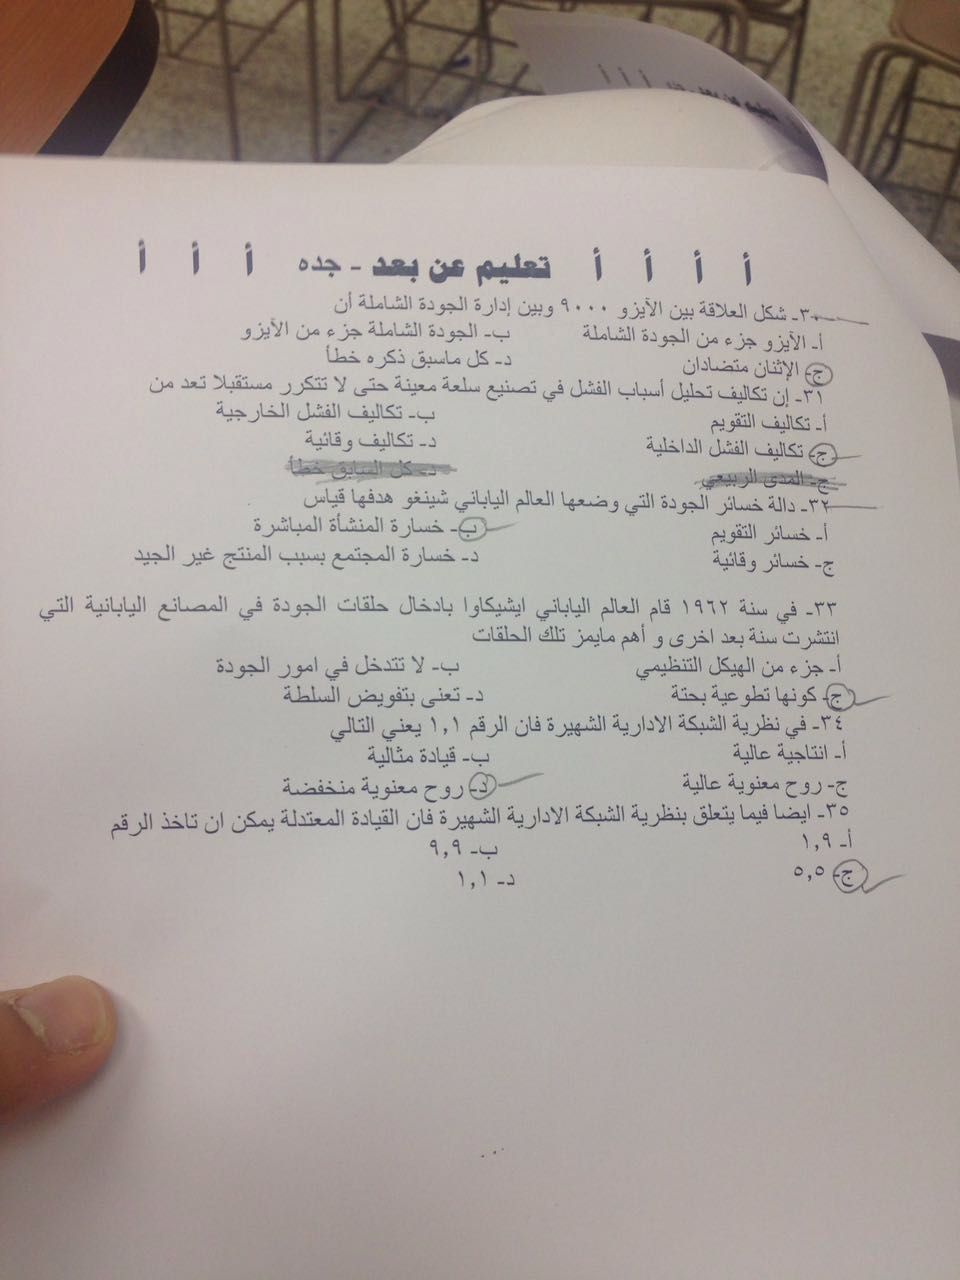 أ أ أ أ تعليم عن بعد - جده أ أ أ
٣٠- شكل العلاقة بين الآيزو ٩٠٠٠ وبين إدارة الجودة الشاملة أن
أ- الآيزو جزء من الجودة الشاملة ب- الجودة الشاملة جزء من الآيزو
ج- الإثنان متضادان د- كل ماسبق ذكره خطأ
٣١- إن تكاليف تحليل أسباب الفشل في تصنيع سلعة معينة حتى لا تتكرر مستقبلا تعد من
أ- تكاليف التقويم ب- تكاليف الفشل الخارجية
ج- تكاليف الفشل الداخلية د- تكاليف وقائية
ج- المدى الربيعي د- كل السابق خطأ
٣٢- دالة خسائر الجودة التي وضعها العالم الياباني شينغو هدفها قياس
أ- خسائر التقويم ب- خسارة المنشأة المباشرة
ج- خسائر وقائية د- خسارة المجتمع بسبب المنتج غير الجيد
٣٣- في سنة ١٩٦٢ قام العالم الياباني ايشيكاوا بادخال حلقات الجودة في المصانع اليابانية التي
انتشرت سنة بعد اخرى و أهم مايمز تلك الحلقات
أ- جزء من الهيكل التنظيمي ب- لا تتدخل في امور الجودة
ج- كونها تطوعية بحتة د- تعنى بتفويض السلطة
٣٤- في نظرية الشبكة الادارية الشهيرة فان الرقم ١,١ يعني التالي
أ- انتاجية عالية ب- قيادة مثالية
ج- روح معنوية عالية د- روح معنوية منخفضة
٣٥- ايضا فيما يتعلق بنظرية الشبكة الادارية الشهيرة فان القيادة المعتدلة يمكن ان تاخذ الرقم
أ- ١,٩ ب- ٩,٩
ج- ٥,٥ د- ١,١